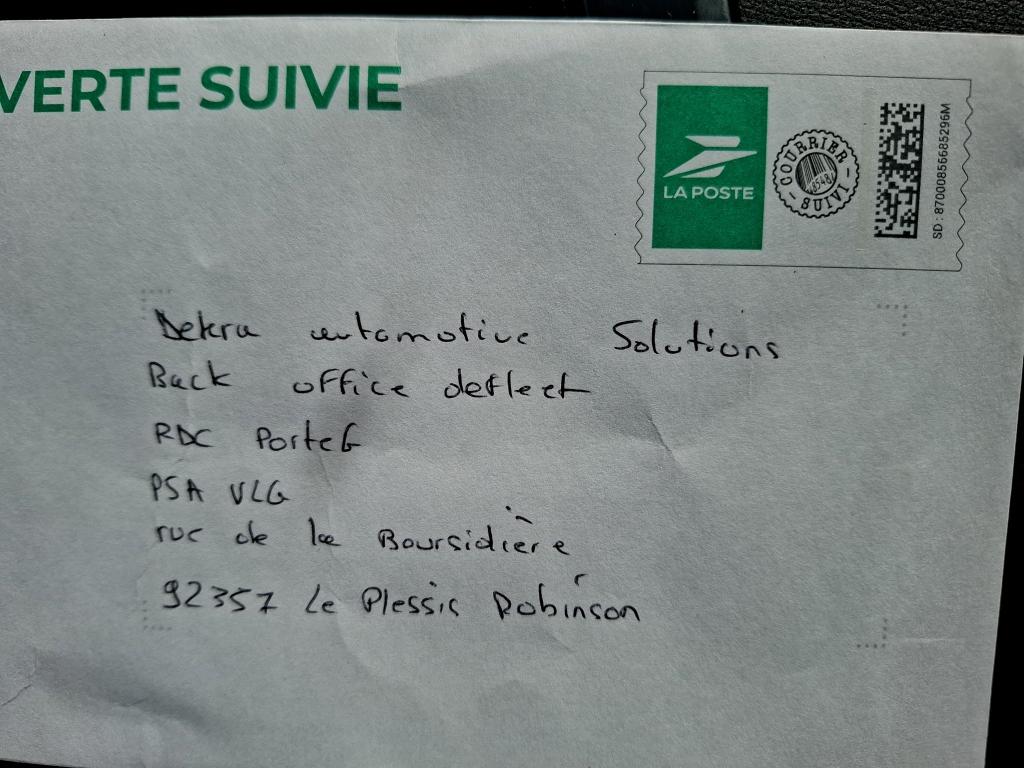 VERTE SUIVIE
LA POSTE
COURRIER
SUIVI
SD : 87000856685296M
Dekra automotive Solutions
Back office deflect
RDC Porte G
PSA VLG
rue de la Boursidière
92357 Le Plessis Robinson